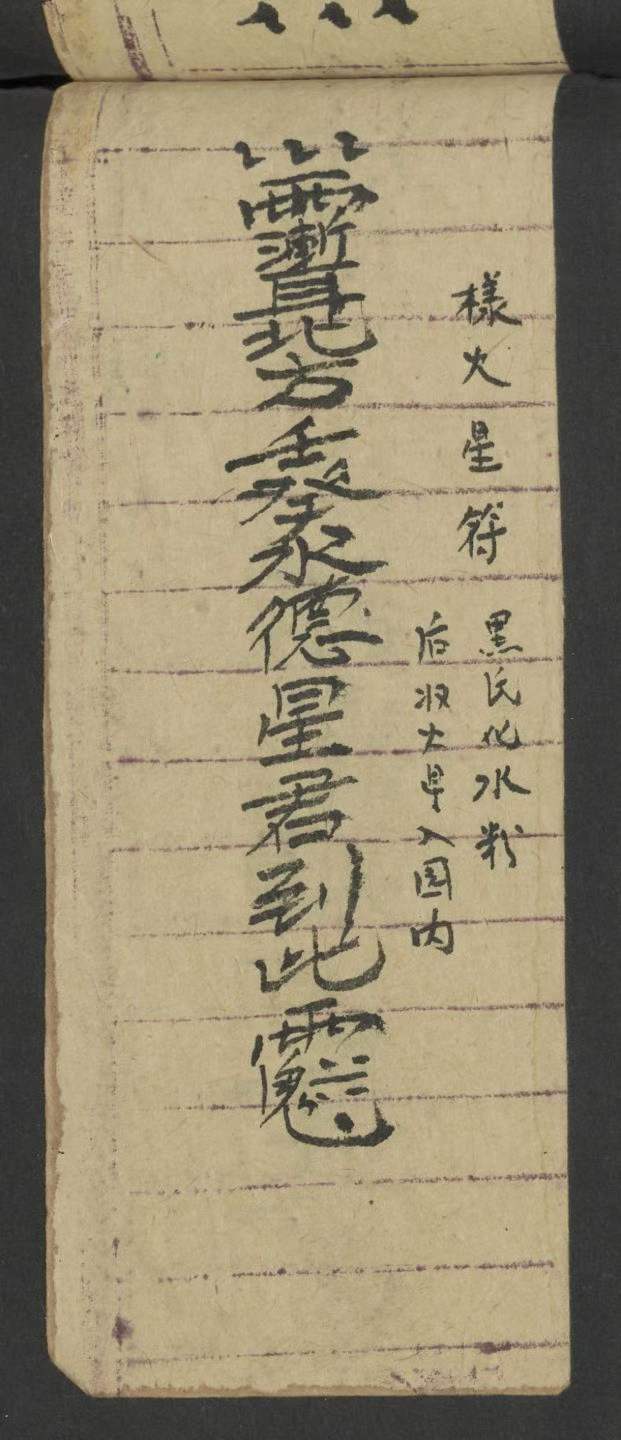 樣火星符
黑氏化水粉
后收火早入园内
北方壬癸水德星君到此